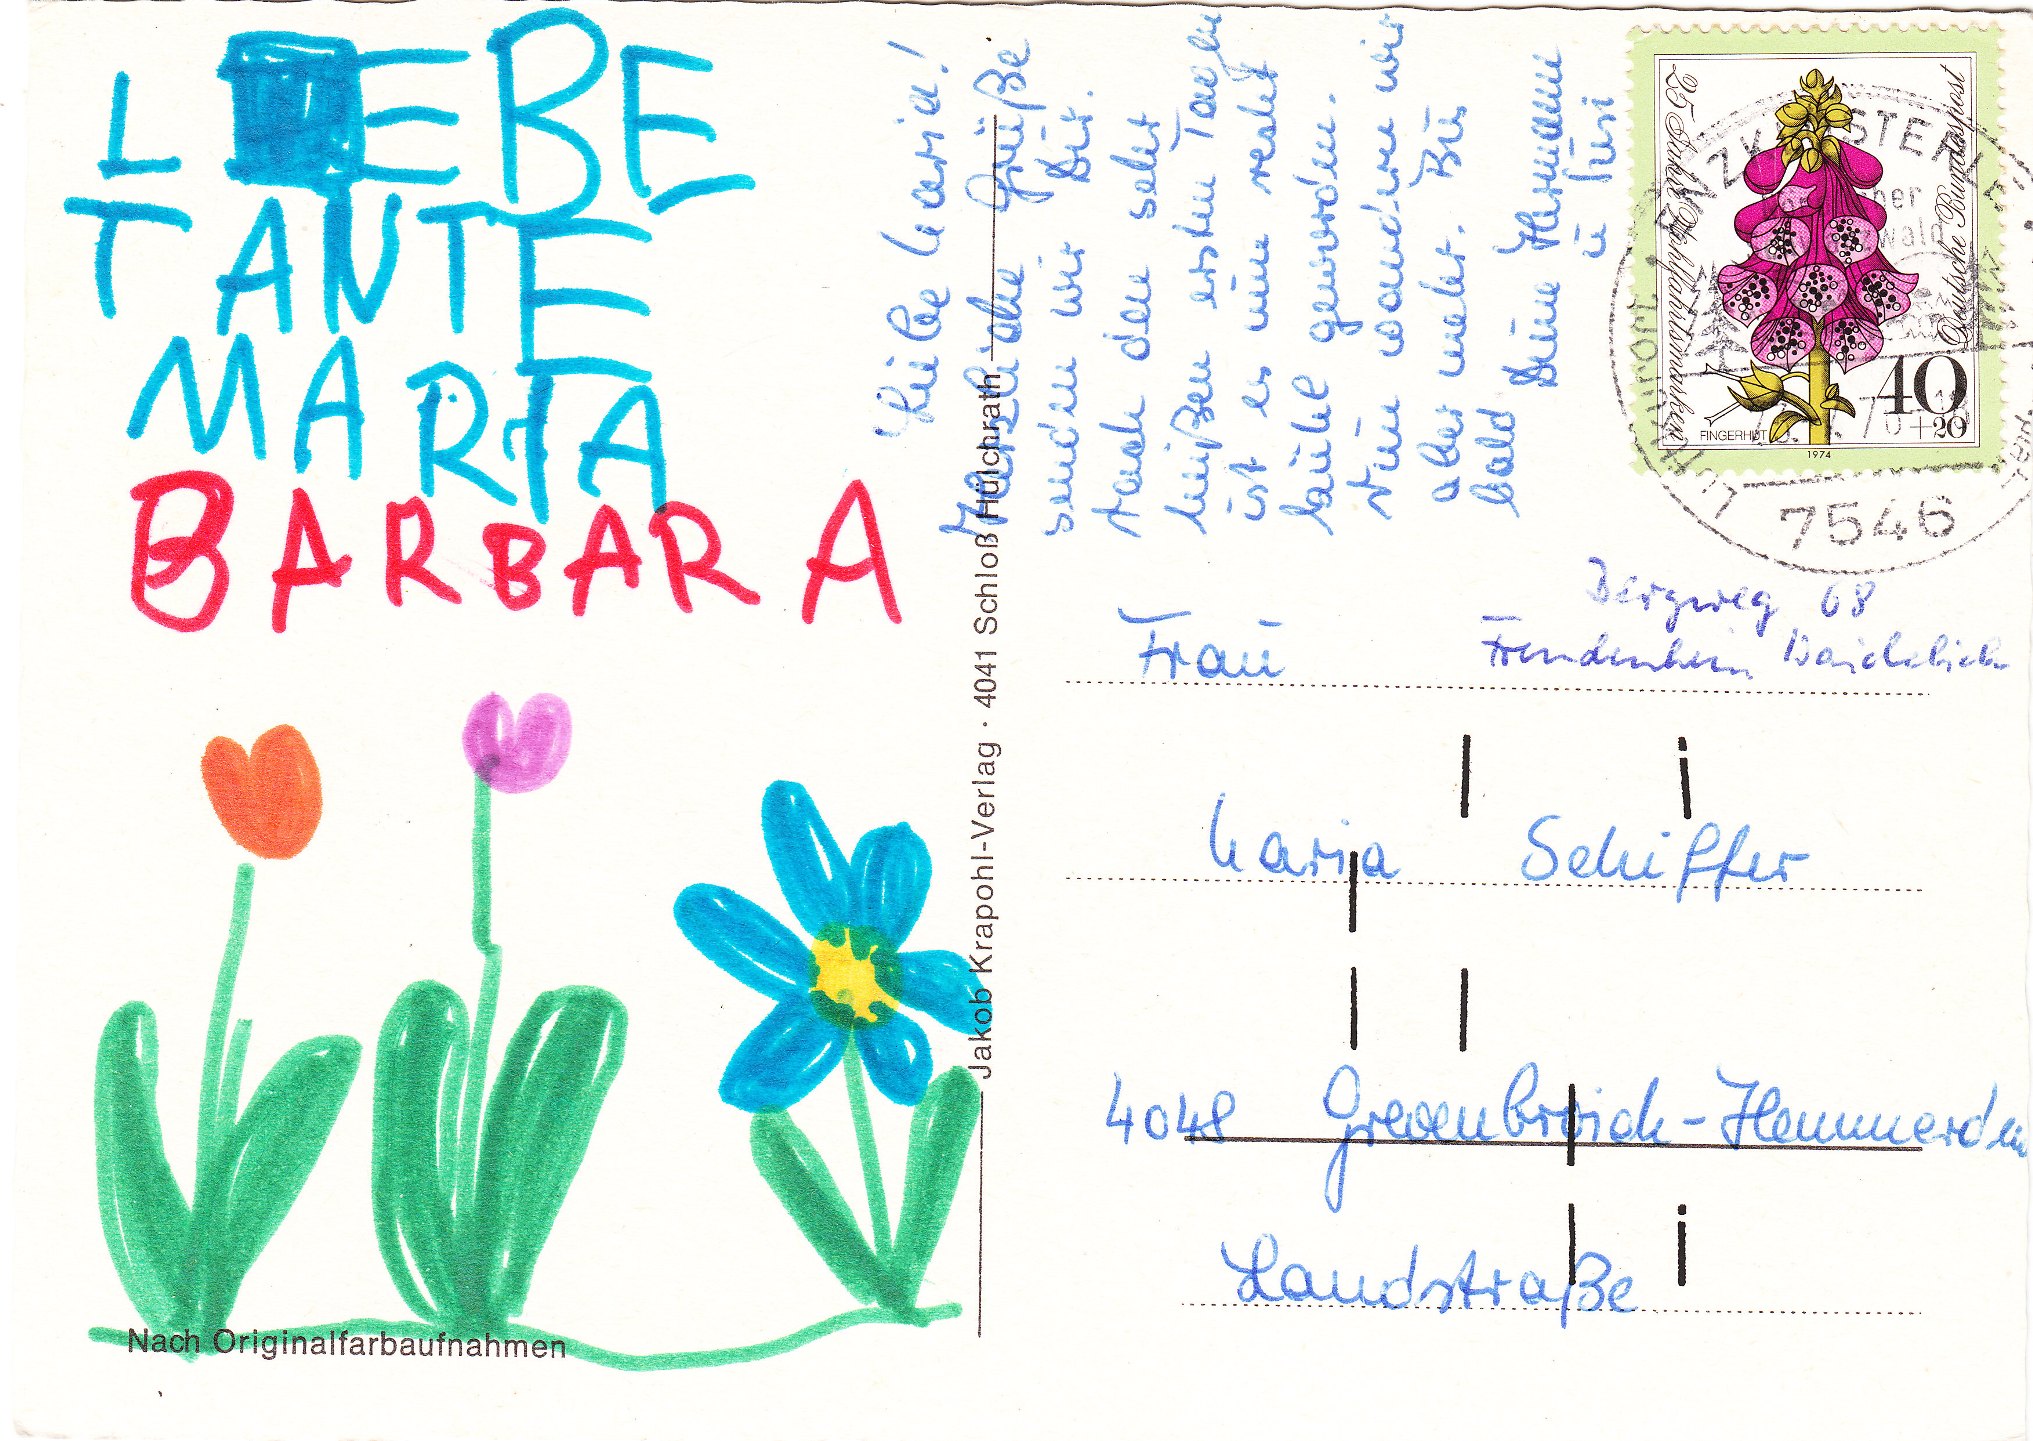 LIEBE
TANTE
MARIA
BARBARA
Nach Originalfarbaufnahmen
Jakob Krapohl-Verlag · 4041 Schloß Hülchrath
Liebe Maria!
Herzliche Grüße
senden wir Dir.
Nach den sehr
heißen ersten Tagen
ist es nun recht
kühl geworden.
Nun wandern wir
aber mehr. Bis
bald Deine Hermann
u
25 Jahre Wohlfahrtsmarken
Deutsche Bundespost
40
+20
FINGERHUT
1974
LUFTKURORT
7546
Bergweg 68
Frau
Maria Schiffer
4048 Grevenbroich-Hemmerden
Landstraße